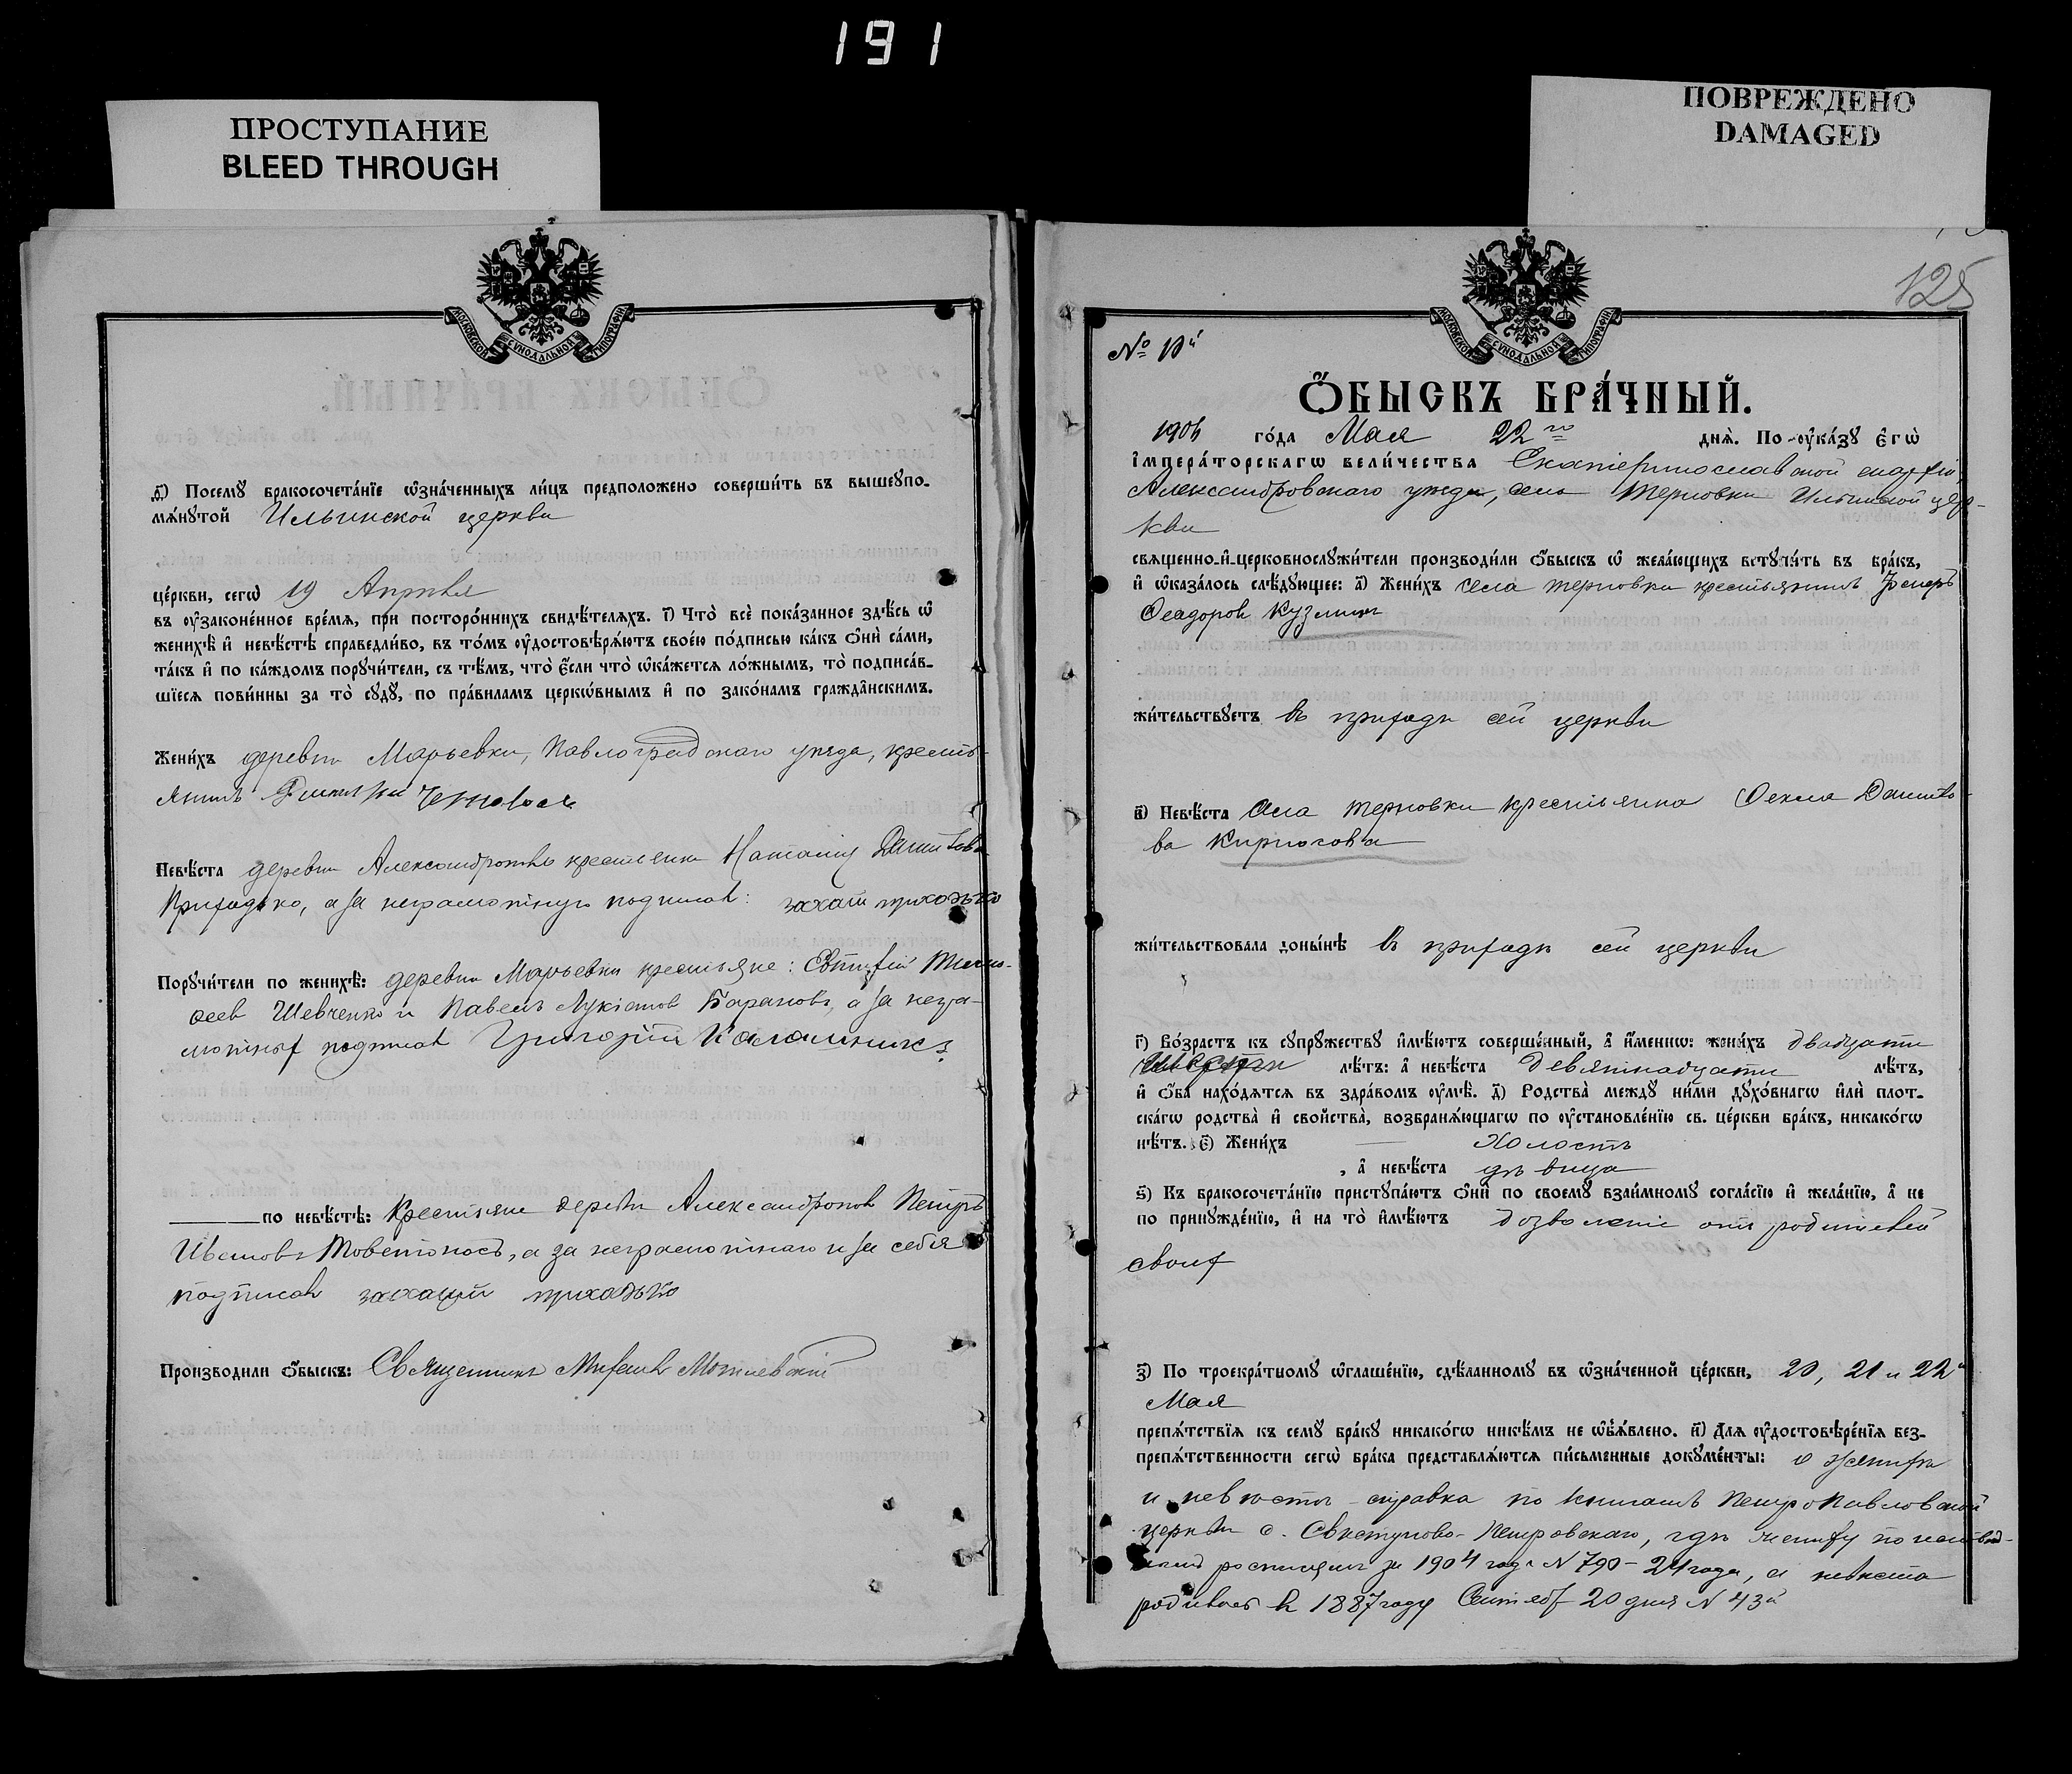 191
ПРОСТУПАНИЕ
BLEED THROUGH
ПОВРЕЖДЕНО
DAMAGED
МОСКОВСКОЙ СѴНОДАЛЬНОЙ ТИПОГРАФІИ
д҃) Посемꙋ бракосочета́нїе ѡзна́ченныхъ ли́цъ предположено соверши́ть въ вышеупо-
мѧ́нꙋтой Ильинской церкви
це́ркви, сегѡ̀ 19 Апрѣля
въ ѹ҆зако́ненное вре́мѧ, при посторо́ннихъ свидѣ́телѧхъ. і҃) Что̀ всѐ пока́занное здѣ́сь ѡ҆
женихѣ̀ и҆ невѣ́стѣ справедли́во, въ то́мъ ѹ҆достовѣрѧ́ютъ свое́ю по́дписью ка́къ ѻ҆нѝ са́ми,
та́къ и҆ по ка́ждомъ порꙋчи́тели, съ тѣ́мъ, что̀ є҆́сли что̀ ѡ҆ка́жетсѧ ло́жнымъ, то̀ подписа́в-
шїесѧ пови́нны за то̀ сꙋдꙋ̀, по пра́виламъ церко́внымъ и҆ по зако́намъ гражда́нскимъ.
Жени́хъ деревни Марьевки, Павлоградскаго уѣзда, кресть-
янинъ
Невѣ́ста деревни крестьянка Наталія
Приходько, а за неграмотную подписалъ: захаш приходько
Порꙋчи́тели по женихѣ̀: деревни Марьевки крестьяне: Евтихій Тимо-
ѳеев Шевченко и Павелъ Лукіановъ Барановъ, а за негра-
мотных подписалъ Григорій
по невѣ́стѣ: Крестьяне деревни Петръ
Ивановъ а за неграмотнаго и за себя
подписалъ захарій приходько
Производили ѻ҆́быскъ: Священникъ Михаилъ
125
МОСКОВСКОЙ СѴНОДАЛЬНОЙ ТИПОГРАФІИ
№ 10й
Ѻ҆́БЫСКЪ БРА́ЧНЫЙ.
1906 го́да Мая 22го днѧ̀. По ѹ҆ка́зꙋ є҆гѡ̀
і҆мпера́торскагѡ вели́чества Екатеринославской епархіи,
Александровскаго уѣзда, села Терновки Ильинской цер-
кви
свѧще́нно-и҆-церковнослꙋжи́тели производи́ли ѻ҆́быскъ ѡ҆ жела́ющихъ встꙋпи́ть въ бра́къ,
и҆ ѡ҆каза́лось слѣ́дꙋющее: а҃) Жени́хъ села Терновки крестьянинъ
Ѳеодоров Кузмин
жи́тельствꙋетъ въ приходѣ сей церкви
в҃) Невѣ́ста села Терновки крестьянка Ѳекла Данило-
ва Кирюхова
жи́тельствовала доны́нѣ въ приходѣ сей церкви
г҃) Во́зрастъ къ сꙋпрꙋ́жествꙋ и҆мѣ́ютъ соверше́нный, а҆ и҆́меннѡ: жени́хъ двадцати
шести лѣ́тъ: а҆ невѣ́ста девятнадцати лѣ́тъ,
и҆ ѻ҆́ба нахо́дѧтсѧ въ здра́вомъ ѹ҆мѣ̀. д҃) Родства̀ междꙋ ни́ми дꙋхо́внагѡ и҆лѝ плот-
ска́гѡ родства̀ и҆ сво́йства̀, возбранѧ́ющагѡ по ѹ҆становле́нїю св. це́ркви бра́къ, никако́гѡ
нѣ́тъ. є҃) Жени́хъ холостъ
, а҆ невѣ́ста дѣвица
ѕ҃) Къ бракосочета́нїю пристꙋпа́ютъ ѻ҆нѝ по своемꙋ̀ взаи́мномꙋ согла́сїю и҆ жела́нїю, а҆ не
по принꙋжде́нїю, и҆ на то̀ и҆мѣ́ютъ дозволеніе отъ родителей
своих
з҃) По троекра́тномꙋ ѡ҆глаше́нїю, сдѣ́ланномꙋ въ ѡ҆зна́ченной це́ркви, 20, 21 и 22й
Мая
препѧ́тствїѧ къ семꙋ̀ бра́кꙋ никако́гѡ никѣ́мъ не ѡ҆б̾ѧ́влено. и҃) Длѧ ѹ҆достовѣре́нїѧ без-
препѧ́тственности сегѡ̀ бра́ка представлѧ́ютсѧ пи́сьменные докꙋме́нты: о женихѣ
и невѣстѣ справка по книгамъ Петро-Павловской
церкви с. Свистуново-Петровскаго, гдѣ жениху по исповѣд-
нымъ росписямъ за 1904 годъ N 790 – 24 года, а невѣста
родилась въ 1887 году Сентяб. 20 дня N 43й